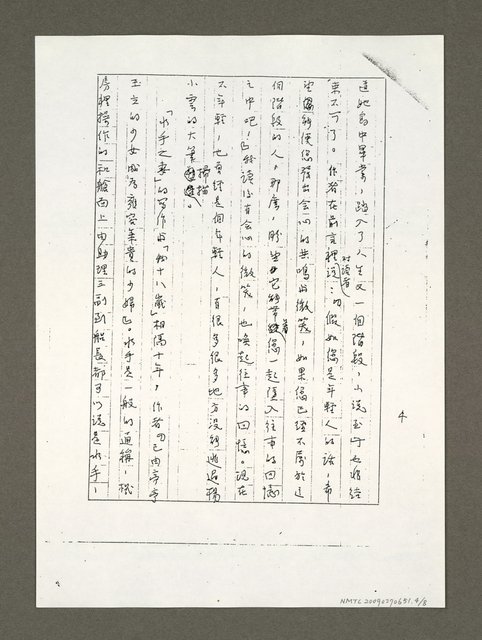 4
這她高中畢業,踏入了人生又一個階段,小說至此也將結
束不可了。作者在前言裡對讀者說:「假如您是年輕人的話,希
望能使您發出會心的共鳴與微笑,如果您已經不屬於這
個階段的人,那麼,盼望它能帶著您一起墜入往事的回憶
之中吧!」我讀後有會心的微笑,也喚起往事的回憶。現在
不年輕,也曾經是個年輕人,有很多很多地方沒能逃過楊
小雲的大筆掃描。
「水手之妻」的寫作與「她十八歲」相隔十年,作者也已由亭亭
玉立的少女成為雍容華貴的少婦了。水手是一般的通稱,從
房裡操作的和艙面上由助理三副到船長都可以說是水手,
NMTL20090270651.4/8